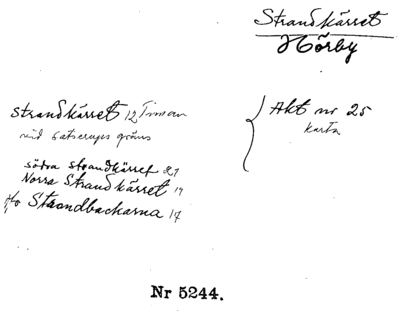 Strandkärret
Hörby
Strandkärret 12 Timan
vid Satserups gräns
södra Strandkärret 21
Norra Strandkärret 19
Strandbackarna 17
Akt nr 25
karta
Nr 5244.